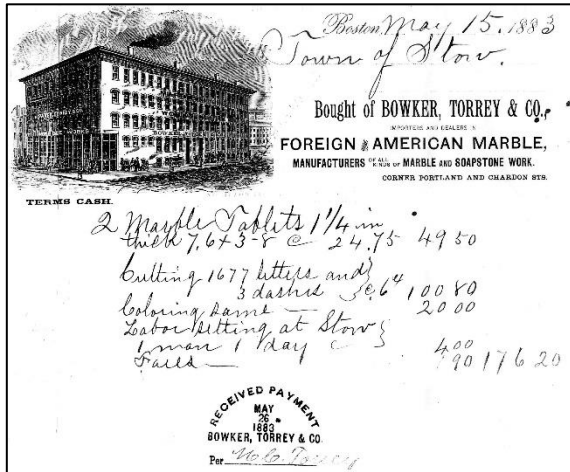 Boston, May 15. 1883
Town of Stow.
Bought of BOWKER, TORREY & CO.,
IMPORTERS AND DEALERS IN
FOREIGN & AMERICAN MARBLE,
MANUFACTURERS OF ALL KINDS OF MARBLE AND SOAPSTONE WORK.
CORNER PORTLAND AND CHARDON STS.
TERMS CASH.
2 Marble Tablets 1 1/4 in
thick 7.6 x 3-8 @ 24.75 49 50
Cutting 1677 letters and
3 dashes @ 6¢ 100 80
Coloring same — 20 00
Labor setting at Stow
1 man 1 day @ 4.00
Fares — 1 90 176 20
RECEIVED PAYMENT
MAY
26
1883
BOWKER, TORREY & CO.
Per Torrey